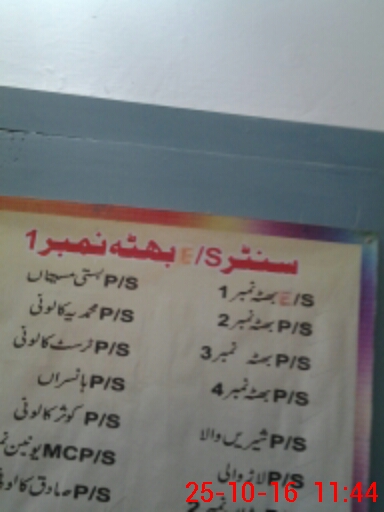 سنٹر E/S بھٹہ نمبر 1
E/S بھٹہ نمبر 1
P/S بھٹہ نمبر 2
P/S بھٹہ نمبر 3
P/S بھٹہ نمبر 4
P/S شیریں والا
P/S لاڑ والی
P/S بستی مسیتاں
P/S محمدیہ کالونی
P/S ٹرسٹ کالونی
P/S بانسراں
P/S کوثر کالونی
MCP/S یونین
P/S صادق کالونی
25-10-16 11:44